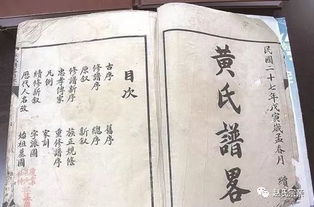 民國二十七年戊寅歲孟春月 續
黃氏譜畧
目次
古序 舊序
修譜序 總序
原叙 新叙
修譜新序 族正規條
忠孝傳家 重修譜序
凡例 家訓
續修新叙 字派圖
歷代人名攷 始祖墓圖